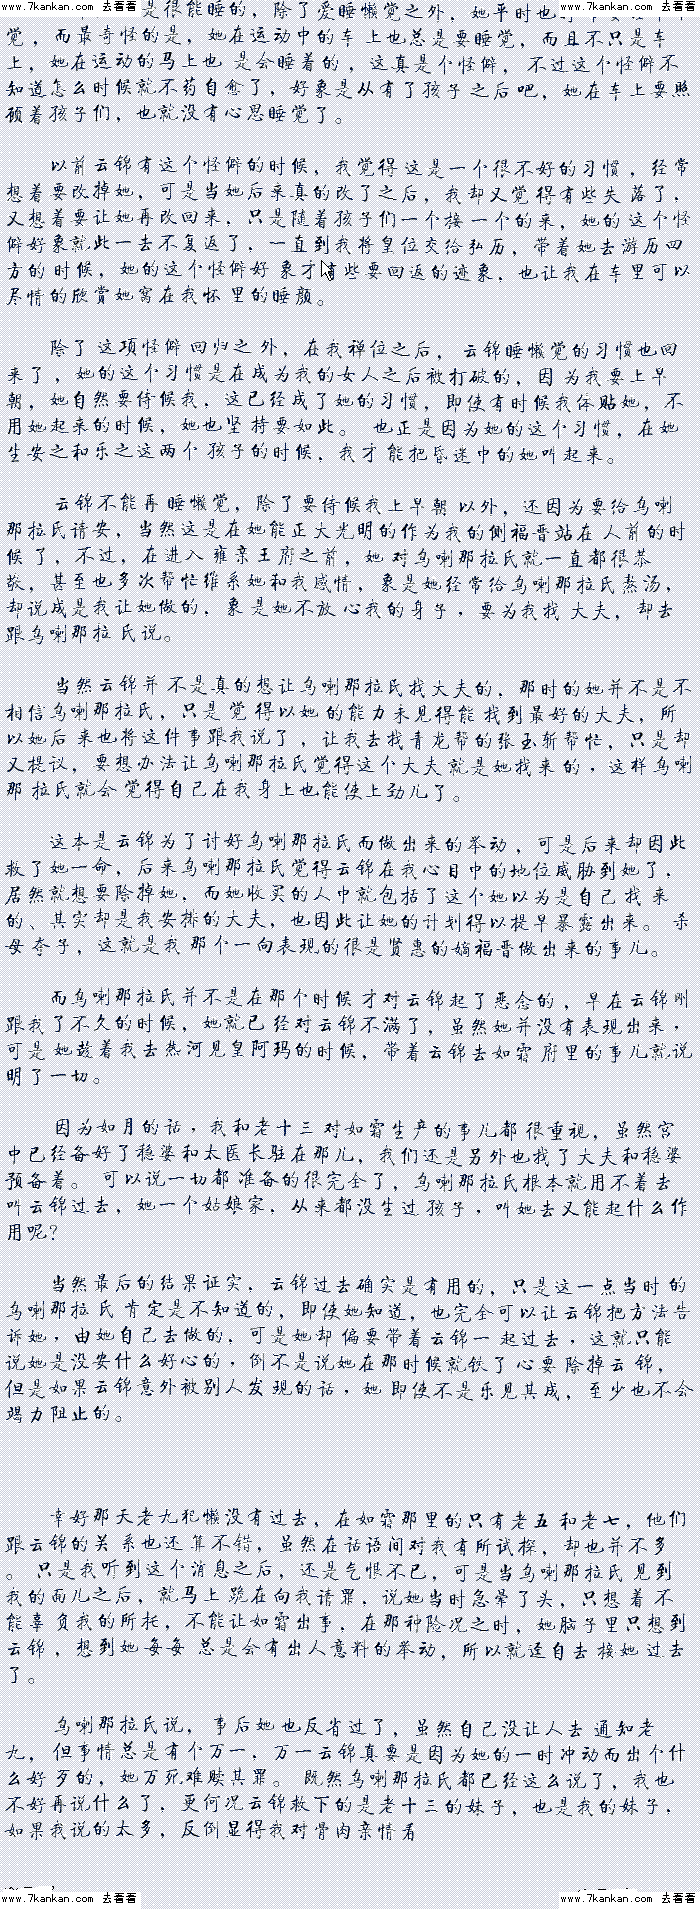 www.7kankan.com 去看看 www.7kankan.com 去看看
是很能睡的，除了爱睡懒觉之外，她平时也
觉，而最奇怪的是，她在运动中的车上也总是要睡觉，而且不只是车
上，她在运动的马上也 是会睡着的，这真是个怪僻，不过这个怪僻不
知道怎么时候就不药自愈了，好象是从有了孩子之后吧，她在车上要照
顾着孩子们，也就没有心思睡觉了。
以前云锦有这个怪僻的时候，我觉得这是一个很不好的习惯，经常
想着要改掉她，可是当她后来真的改了之后，我却又觉得有些失落了，
又想着要让她再改回来，只是随着孩子们一个接一个的来，她的这个怪
僻好象就此一去不复返了，一直到我将皇位交给弘历，带着她去游历四
方的时候，她的这个怪僻好 象才有些要回返的迹象，也让我在车里可以
尽情的欣赏她窝在我怀里的睡颜。
除了 这项怪僻回归之外，在我禅位之后， 云锦睡懒觉的习惯也回
来了，她的这个习惯是在成为我的女人之后被打破的，因为我要上早
朝，她自然要侍候我，这已经成了她的习惯，即使有时候我体贴她，不
用她起来的时候，她也坚持要如此。 也正是因为她的这个习惯，在她
生安之和乐之这两个 孩子的时候，我才能把昏迷中的她叫起来。
云锦不能再睡懒觉，除了要侍候我上早朝以外，还因为要给乌喇
那拉氏请安，当然这是在她能正大光明的作为我的侧福晋站在人前的时
候了，不过，在进入雍亲王府之前，她对乌喇那拉氏就一直都很恭
敬，甚至也多次帮忙维系她和我感情，象是她经常给乌喇那拉氏熬汤，
却说成是我让她做的，象是她不放心我的身子，要为我找大夫，却去
跟乌喇那拉氏说。
当然云锦并不是真的想让乌喇那拉氏找大夫的，那时的她并不是不
相信乌喇那拉氏，只是觉得以她的能力未见得能找到最好的大夫，所
以她后来也将这件事跟我说了，让我去找青龙帮的张玉斩帮忙，只是却
又提议，要想办法让乌喇那拉氏觉得这个大夫就是她找来的，这样乌喇
那拉氏就会觉得自己在我身上也能使上劲儿了。
这本是云锦为了讨好乌喇那拉氏而做出来的举动，可是后来却因此
救了她一命，后来乌喇那拉氏觉得云锦在我心目中的地位威胁到她了，
居然就想要除掉她，而她收买的人中就包括了这个她以为是自己找来
的、其实却是我安排的大夫，也因此让她的计划得以提早暴露出来。 杀
母夺子，这就是我那个一向表现的很是贤惠的嫡福晋做出来的事儿。
而乌喇那拉氏并不是在那个时候才对云锦起了恶念的，早在云锦刚
跟我了不久的时候，她就已经对云锦不满了，虽然她并没有表现出来，
可是她趁着我去热河见皇阿玛的时候，带着云锦去如霜府里的事儿就说
明了一切。
因为如月的话，我和老十三对如霜生产的事儿都很重视，虽然宫
中已经备好了稳婆和太医长驻在那儿，我们还是另外也找了大夫和稳婆
预备着。 可以说一切都准备的很完全了，乌喇那拉氏根本就用不着去
叫云锦过去，她一个姑娘家，从来都没生过孩子，叫她去又能起什么作
用呢？
当然最后的结果证实，云锦过去确实是有用的，只是这一点当时的
乌喇那拉氏肯定是不知道的，即使她知道，也完全可以让云锦把方法告
诉她，由她自己去做的，可是她却偏要带着云锦一起过去，这就只能
说她是没安什么好心的，倒不是说她在那时候就铁了心要除掉云锦，
但是如果云锦意外被别人发现的话，她即使不是乐见其成，至少也不会
竭力阻止的。
幸好那天老九犯懒没有过去，在如霜那里的只有老五和老七，他们
跟云锦的关系也还算不错，虽然在话语间对我有所试探，却也并不多
。 只是我听到这个消息之后，还是气恨不已，可是当乌喇那拉氏见到
我的面儿之后，就马上跪在向我请罪，说她当时急晕了头，只想着不
能辜负我的所托，不能让如霜出事，在那种险况之时，她脑子里只想到
云锦，想到她每每总是会有出人意料的举动，所以就迳自去接她过去
了。
乌喇那拉氏说，事后她也反省过了，虽然自己没让人去通知老
九，但事情总是有个万一，万一云锦真要是因为她的一时冲动而出个什
么好歹的，她万死难赎其罪。 既然乌喇那拉氏都已经这么说了，我也
不好再说什么了，更何况云锦救下的是老十三的妹子，也是我的妹子，
如果我说的太多，反倒显得我对骨肉亲情看
www.7kankan.com 去看看 www.7kankan.com 去看看